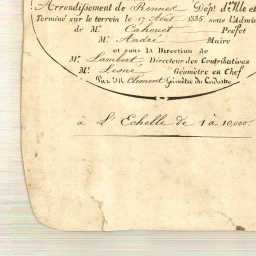 Arrondissement de Rennes Dép.t d'Ille et
Terminé sur le terrain le 17 Août 1835, sous l'Admin
de Mr. Cahouet Préfet
Mr. André Maire
et sous la Direction de
Mr. Lambert Directeur des Contributions
Mr. Lesné Géomètre en Chef
Par Mr. Clement Géomètre du Cadastre
à l'Echelle de 1 à 10,000.